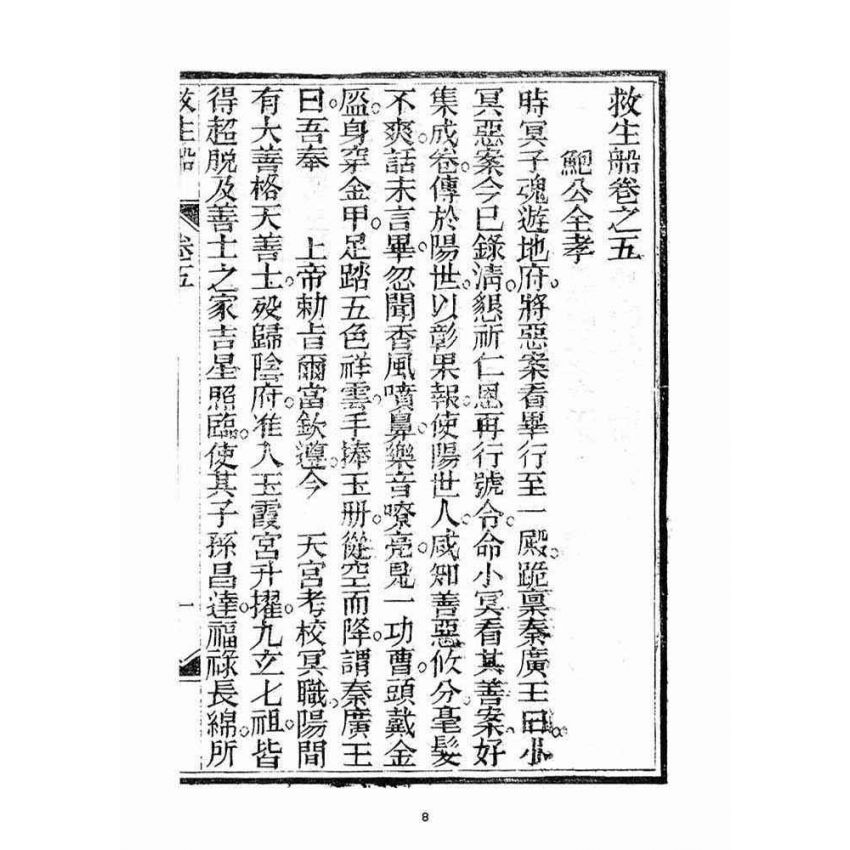 救生船卷之五
鮑公全孝
時冥子魂遊地府。將惡案看畢行至一殿。跪稟秦廣王曰。小
冥惡案今已錄清。懇祈仁恩再行號令。命小冥看其善案。好
集成卷。傳於陽世。以彰果報。使陽世人。咸知善惡攸分。毫髮
不爽。話未言畢。忽聞香風噴鼻。樂音嘹亮。見一功曹頭戴金
盔。身穿金甲。足踏五色祥雲。手捧玉册。從空而降。謂秦廣王
曰。吾奉 上帝勅旨。爾當欽遵。今 天宮考校冥職。陽間
有大善格天善士。歿歸陰府。准入玉霞宮升擢。九玄七祖。皆
得超脫。及善士之家吉星照臨。使其子孫昌達。福祿長綿。所
救生船 卷五 一
8